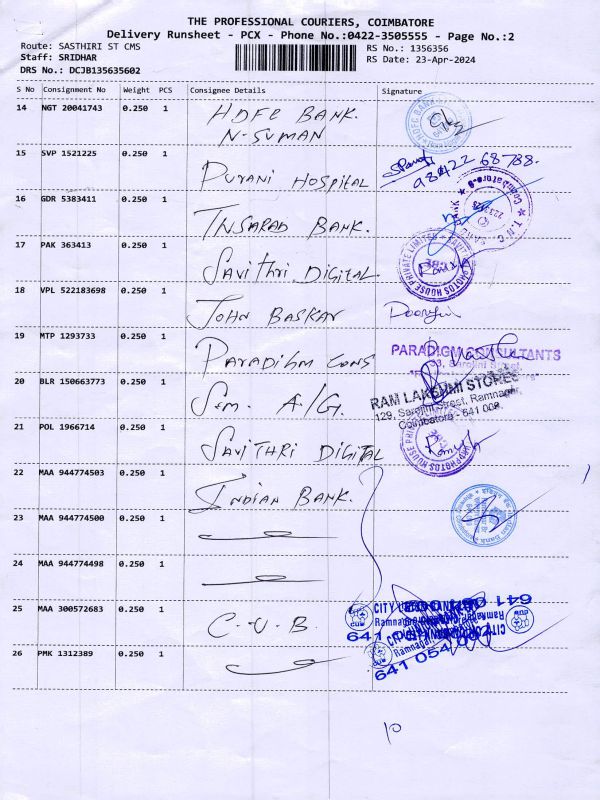 THE PROFESSIONAL COURIERS, COIMBATORE
Delivery Runsheet - PCX - Phone No.:0422-3505555 - Page No.:2
Route: SASTHIRI ST CMS
Staff: SRIDHAR
DRS No.: DCJB135635602
RS No.: 1356356
RS Date: 23-Apr-2024
S No Consignment No Weight PCS Consignee Details Signature
14 NGT 20041743 0.250 1 HDFC BANK.
N-SUMAN
15 SVP 1521225 0.250 1 PURANI HOSPITAL 98422 68788.
16 GDR 5383411 0.250 1 INSARAD BANK.
17 PAK 363413 0.250 1 SAVITHRI DIGITAL
18 VPL 522183698 0.250 1 JOHN BASKAR
19 MTP 1293733 0.250 1 PARADIHM CONS PARADIGM CONSULTANTS
20 BLR 150663773 0.250 1 Sem. A/G. RAM LAKSHMI STORES
129, Sarojini Street, Ramnagar,
Coimbatore - 641 009.
21 POL 1966714 0.250 1 SAVITHRI DIGITAL
22 MAA 944774503 0.250 1 INDIAN BANK.
23 MAA 944774500 0.250 1
24 MAA 944774498 0.250 1
25 MAA 300572683 0.250 1 C.U.B. CITY
Ramnagar
26 PMK 1312389 0.250 1
10